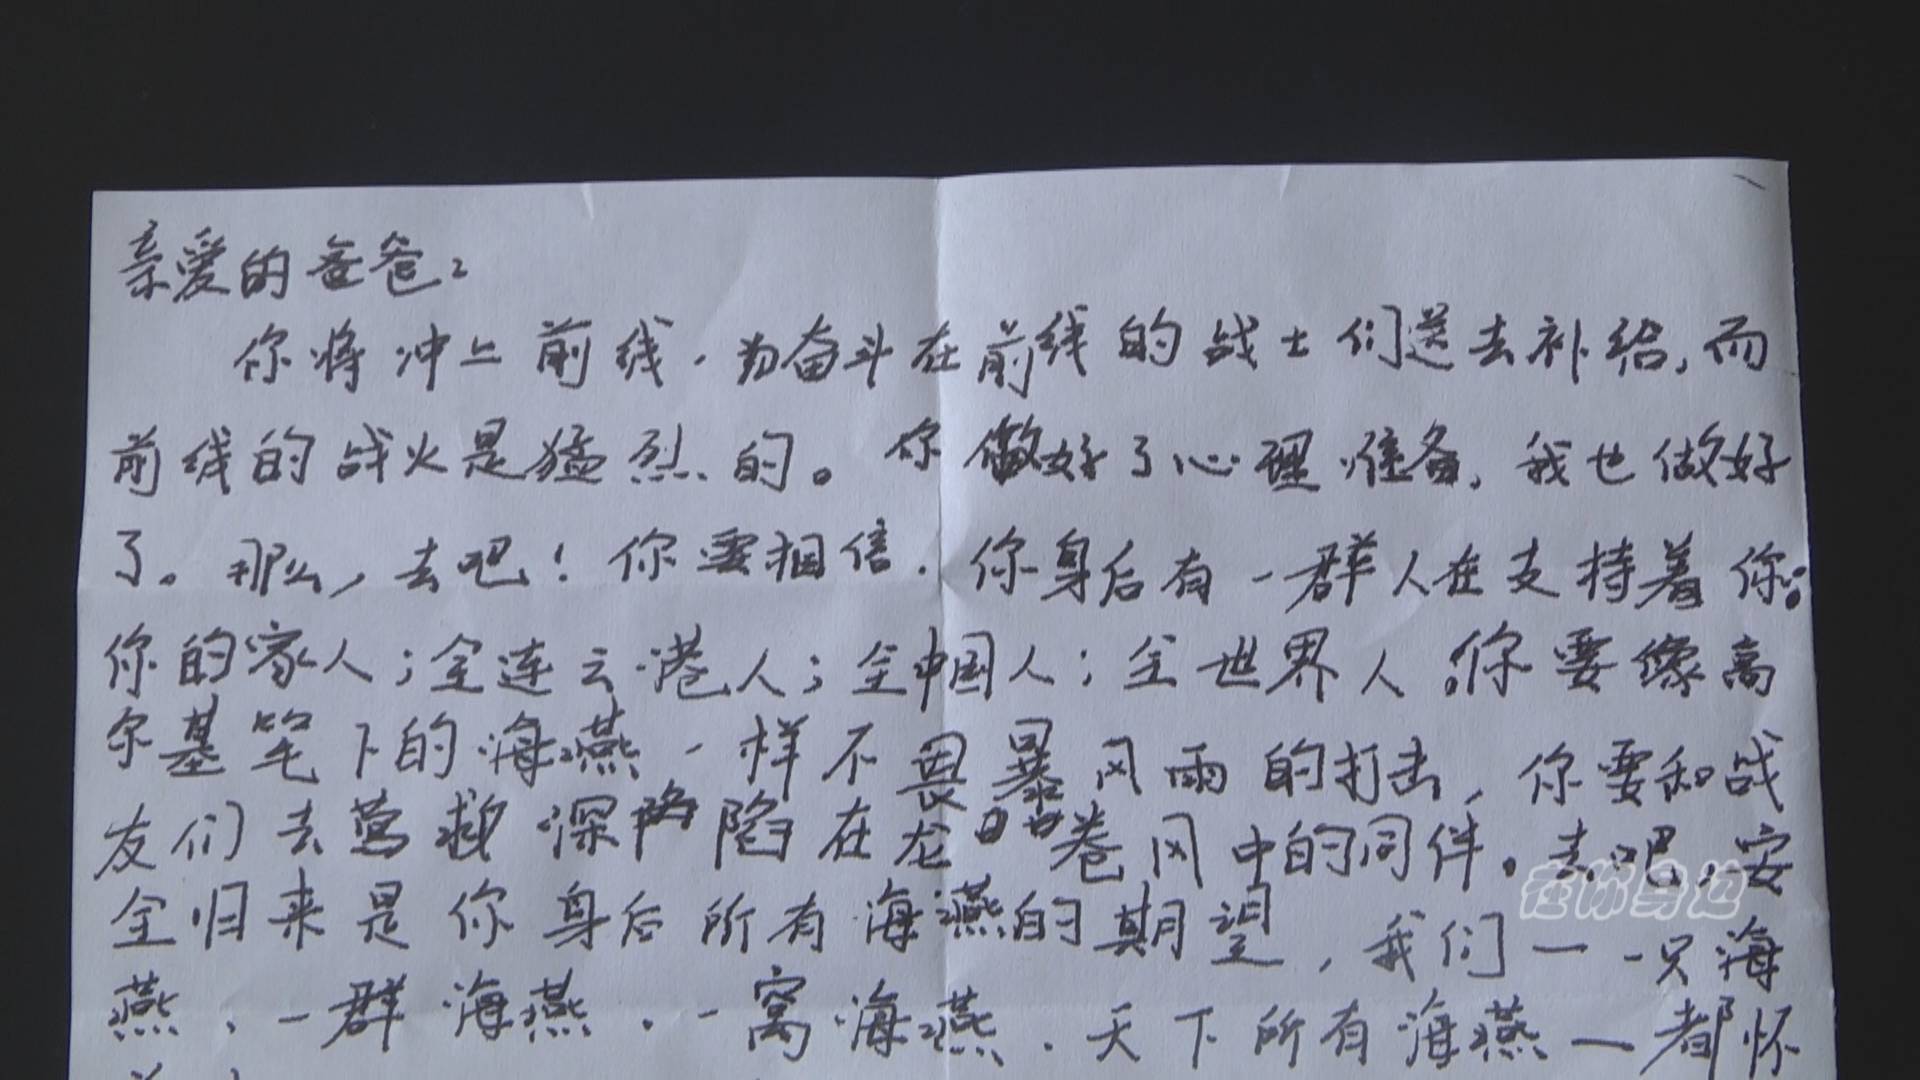 亲爱的爸爸：
你将冲上前线，为奋斗在前线的战士们送去补给，而
前线的战火是猛烈的。你做好了心理准备，我也做好
了。那么，去吧！你要相信，你身后有一群人在支持着你：
你的家人；全连云港人；全中国人；全世界人。你要像高
尔基笔下的海燕一样不畏暴风雨的打击，你要和战
友们去营救深陷在龙卷风中的同伴。去吧，安
全归来是你身后所有海燕的期望，我们——一只海
燕，一群海燕，一窝海燕，天下所有海燕——都怀
在你身边